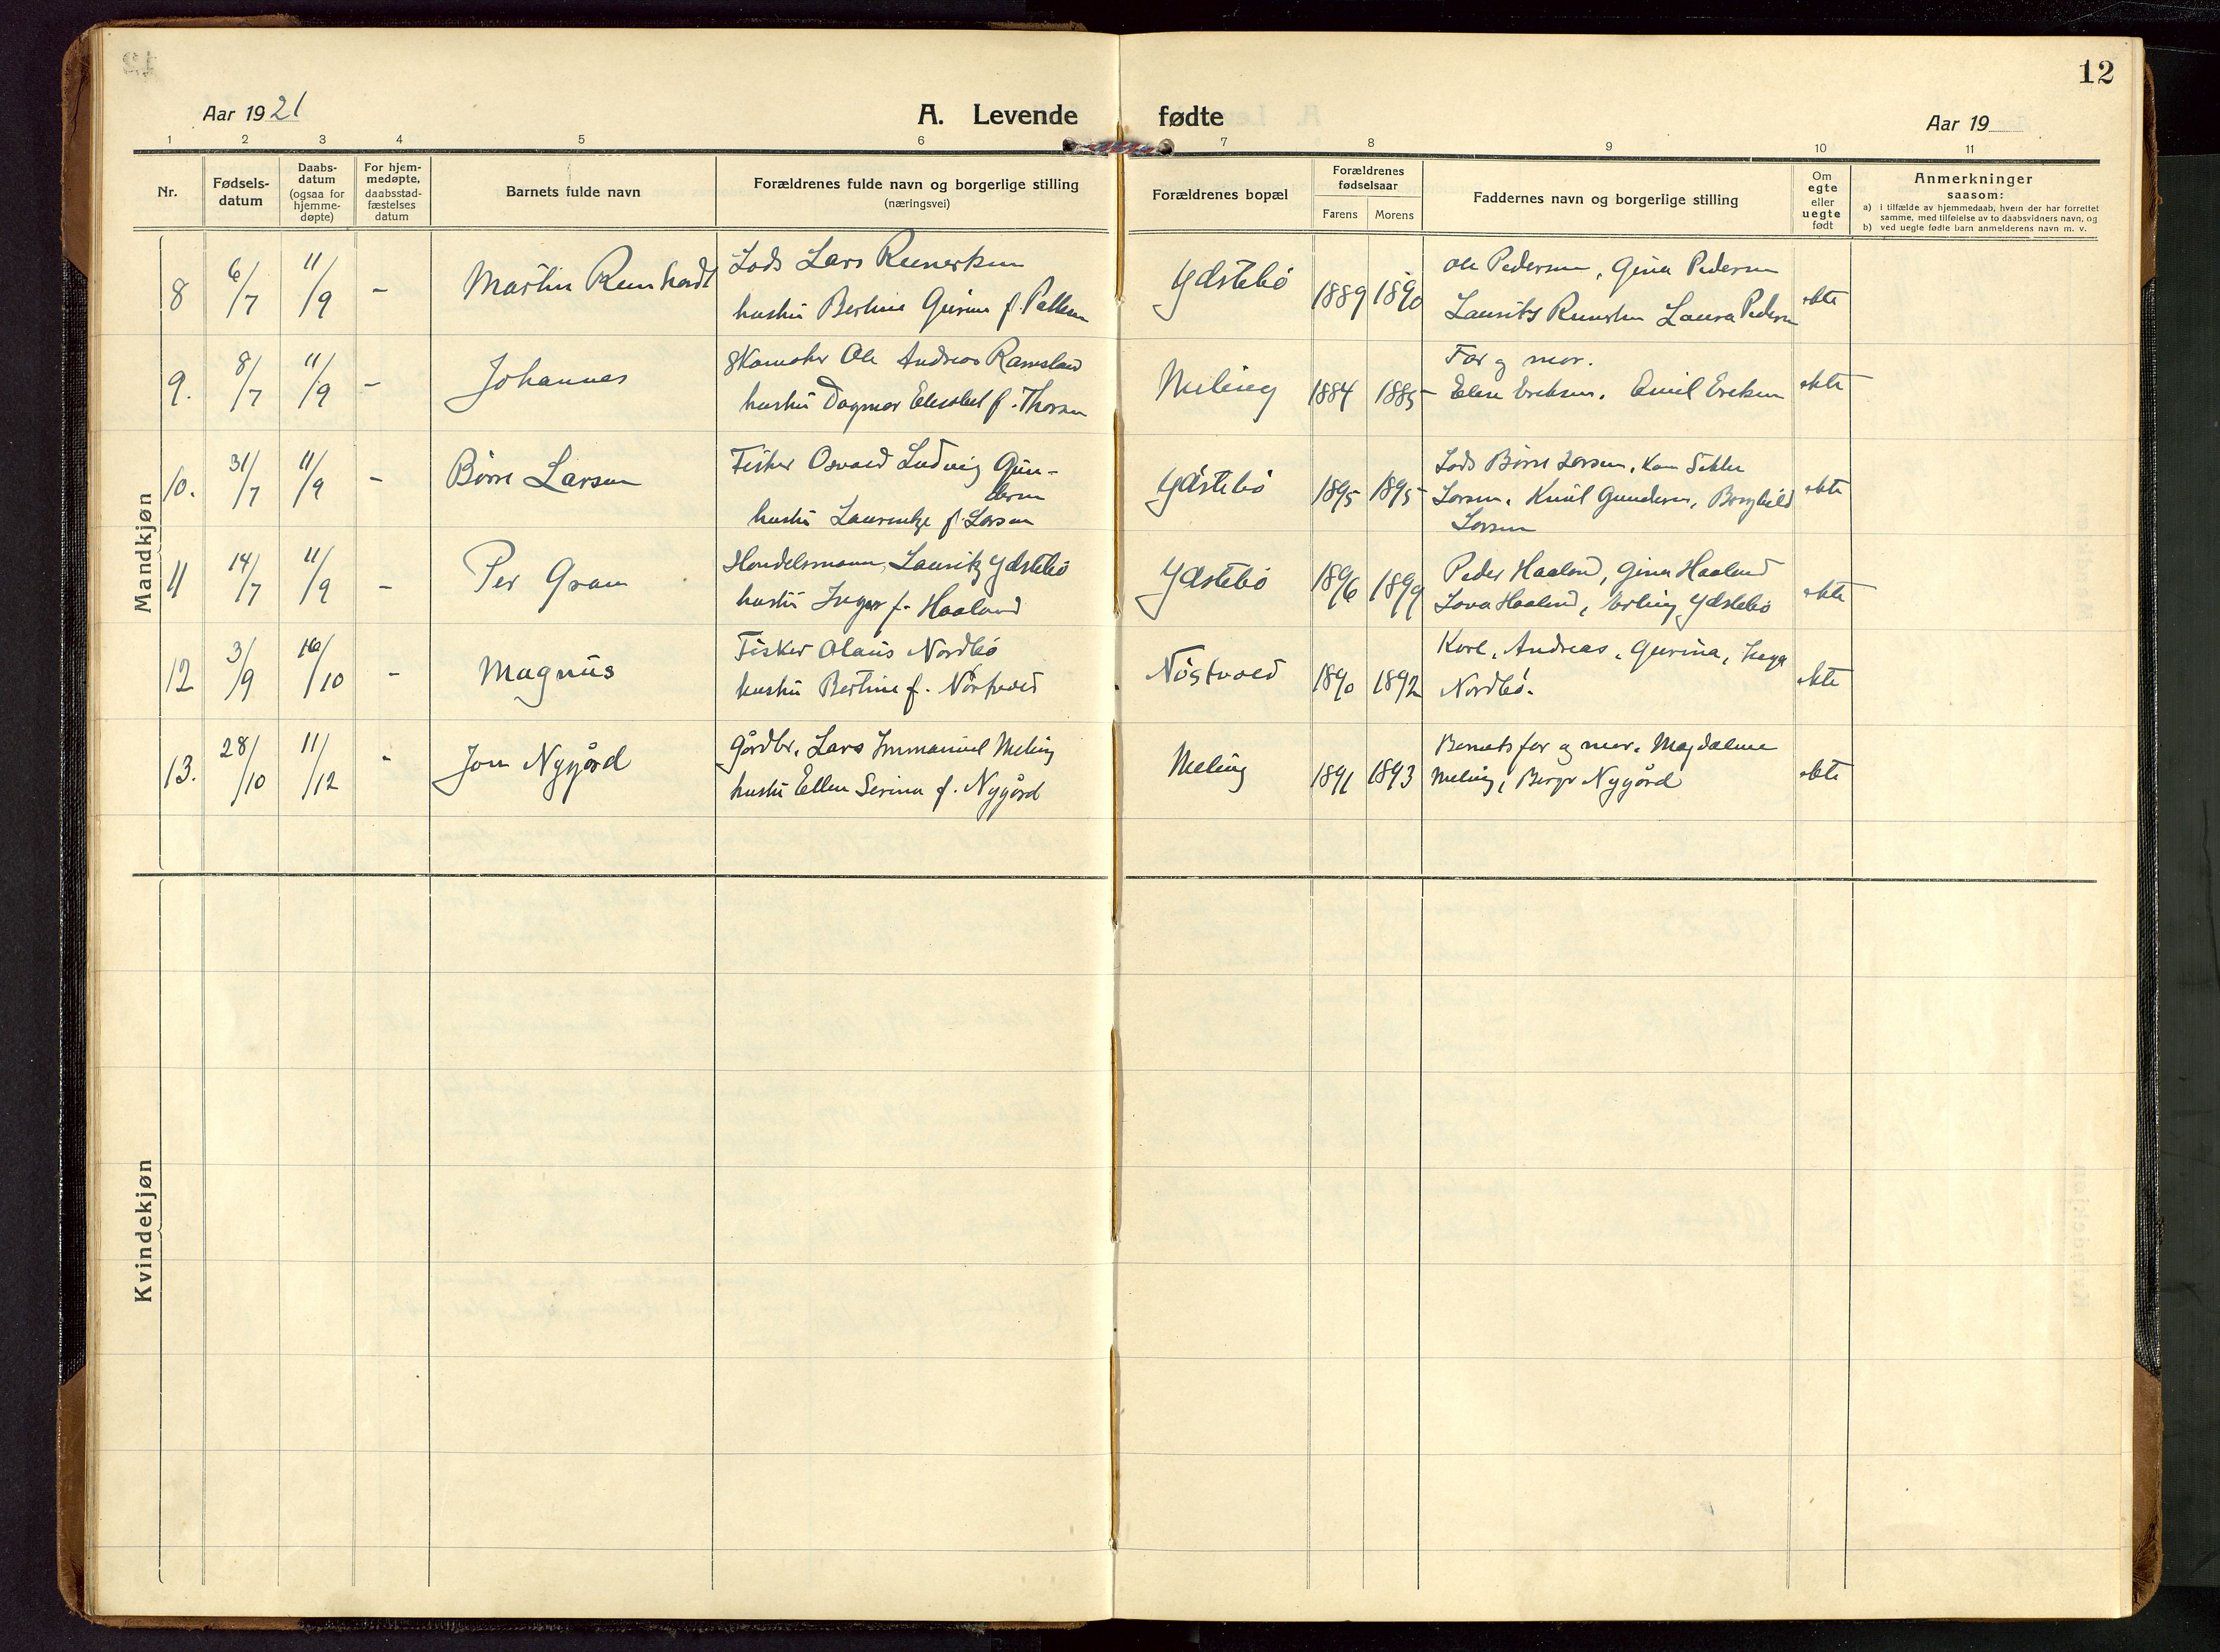 12
Aar 1921
A. Levende fødte
Aar 19
1 2 3 4 5 6 7 8 9 10 11
Nr.
Fødsels-
datum
Daabs-
datum
(ogsaa for
hjemme-
døpte)
For hjem-
medøpte,
daabsstad-
fæstelses
datum
Barnets fulde navn
Forældrenes fulde navn og borgerlige stilling
(næringsvei)
Forældrenes bopæl
Forældrenes
fødselsaar
Farens Morens
Faddernes navn og borgerlige stilling
Om
egte
eller
uegte
født
Anmerkninger
saasom:
a) i tilfælde av hjemmedaab, hvem der har forrettet
samme, med tilføielse av to daabsvidners navn, og
b) ved uegte fødte barn anmelderens navn m. v.
Mandkjøn
8 6/7 11/9 - Martin Reinhardt
Lods Lars
hustru Bertine
Ydstebö 1889 1890
Ole Pedersen, Gina Pedersen
Laurits Laura Pedersen
ekte
9. 8/7 11/9 - Johannes
Skomaker Ole Andreas Ramsland
hustru Dagmar Elisabet f. Thorsen
Meling 1884 1885
Far og mor.
Eriksen. Emil Eriksen
ekte
10. 31/7 11/9 - Börre Larsen
Fisker Osvald Ludvig Gun-
dersen
hustru f. Larsen
Ydstebö 1895 1895
Lods Börre Larsen,
Larsen, Gundersen, Borghild
Larsen
ekte
11 14/7 11/9 - Per Gram
Handelsmann, Lauritz Ydstebö
hustru Inger f. Haaland
Ydstebö 1896 1899
Peder Haaland, Gina Haaland
Haaland, Erling Ydstebö
ekte
12 3/9 16/10 - Magnus
Fisker Olaus Nordbö
hustru Bertine f. Nöstvold
Nöstvold 1890 1892
Karl, Andreas, Gurina,
Nordbö.
ekte
13. 28/10 11/12 - Jon Nygård
Gårdbr. Lars Immanuel Meling
hustru Ellen Serina f. Nygård
Meling 1891 1893
Barnets far og mor. Magdalene
Meling, Nygård
ekte
Kvindekjøn